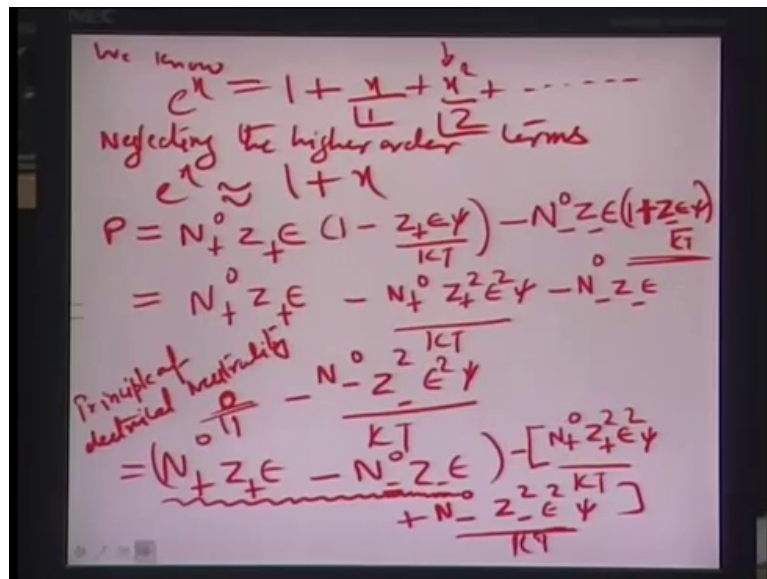 NEC
We know
e^x = 1 + x/⌊1 + x²/⌊2 + ........
Neglecting the higher order terms
e^x ≈ 1 + x
ρ = N₊⁰ z₊ ϵ (1 - z₊ϵψ/KT) - N₋⁰ z₋ ϵ (1 + z₋ϵψ/KT)
= N₊⁰ z₊ ϵ - N₊⁰ z₊² ϵ² ψ/KT - N₋⁰ z₋ ϵ
- N₋⁰ z₋² ϵ² ψ/KT
Principle of
electrical neutrality
0
11
= (N₊⁰ z₊ ϵ - N₋⁰ z₋ ϵ) - [N₊⁰ z₊² ϵ² ψ/KT
+ N₋⁰ z₋² ϵ² ψ/KT]